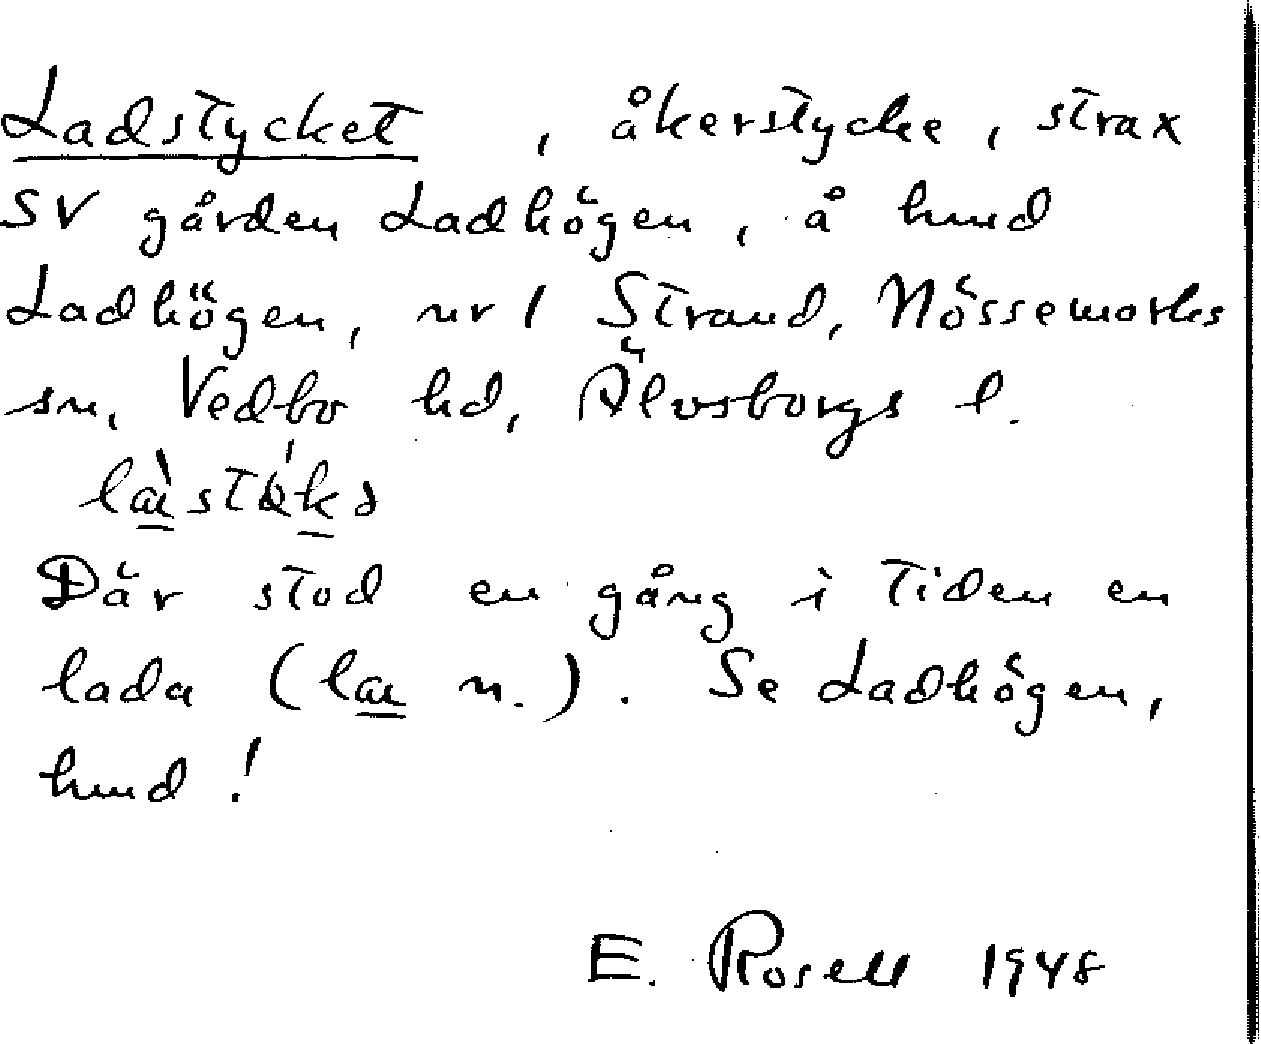 Ladstycket , åkerstycke, strax
SV gården Ladhögen, å hmd
Ladhögen, nr 1 Strand, Nössemarks
sn, Vedbo hd, Älvsborgs l.
Där stod en gång i tiden en
lada (læ n.). Se Ladhögen,
hmd!
E. Rosell 1948